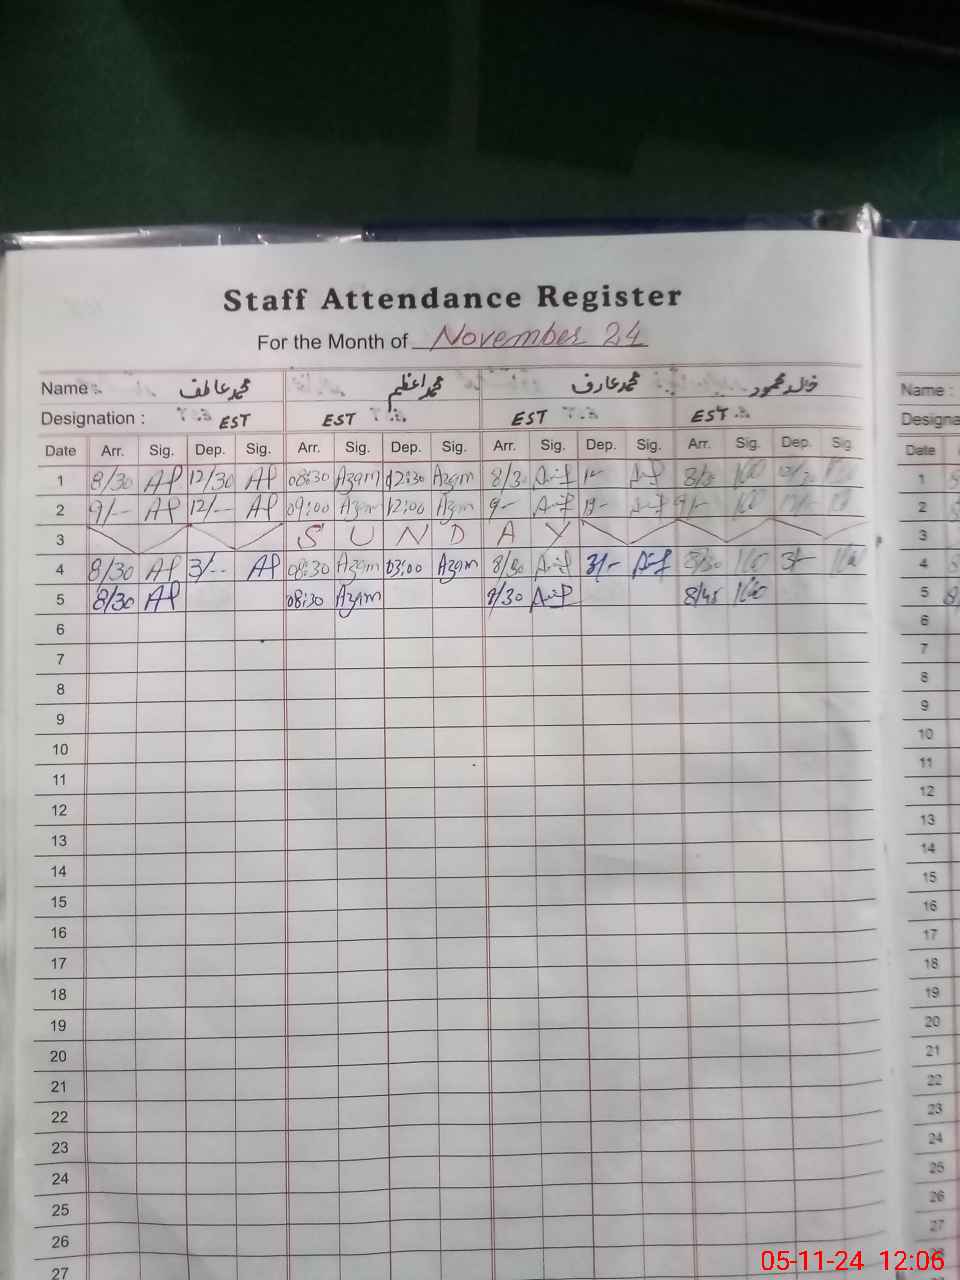 Staff Attendance Register
For the Month of November 24
Name : محمد عاطف محمد اعظم محمد عارف خالد محمود Name :
Designation : EST EST EST EST Designa
Date Arr. Sig. Dep. Sig. Arr. Sig. Dep. Sig. Arr. Sig. Dep. Sig. Arr. Sig. Dep. Sig Date
1 8/30 Af 12/30 Af 08:30 Azam 12:30 Azam 8/30 Arif Arif 1
2 9/-- Af 12/-- Af 09:00 Azam 12:00 Azam 9- Arif Arif 9/- 2
3 S U N D A Y 3
4 8/30 Af 3/-- Af 08:30 Azam 03:00 Azam 8/30 Arif 3/- Arif 8/30 3/- 4
5 8/30 Af 08:30 Azam 9/30 Arif 8/45 5
6 6
7 7
8 8
9 9
10 10
11 11
12 12
13 13
14 14
15 15
16 16
17 17
18 18
19 19
20 20
21 21
22 22
23 23
24 24
25 25
26 26
27 27
05-11-24 12:06